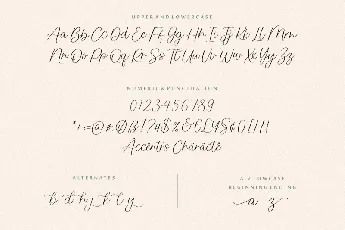 UPPER AND LOWERCASE
Aa Bb Cc Dd Ee Ff Gg Hh Ii Jj Kk Ll Mm
Nn Oo Pp Qq Rr Ss Tt Uu Vv Ww Xx Yy Zz
NUMERIC & PUNCTUATION
0123456789
Accents Characte
ALTERNATES
b d h k l y
LOWERCASE
BEGINNING ENDING
a z